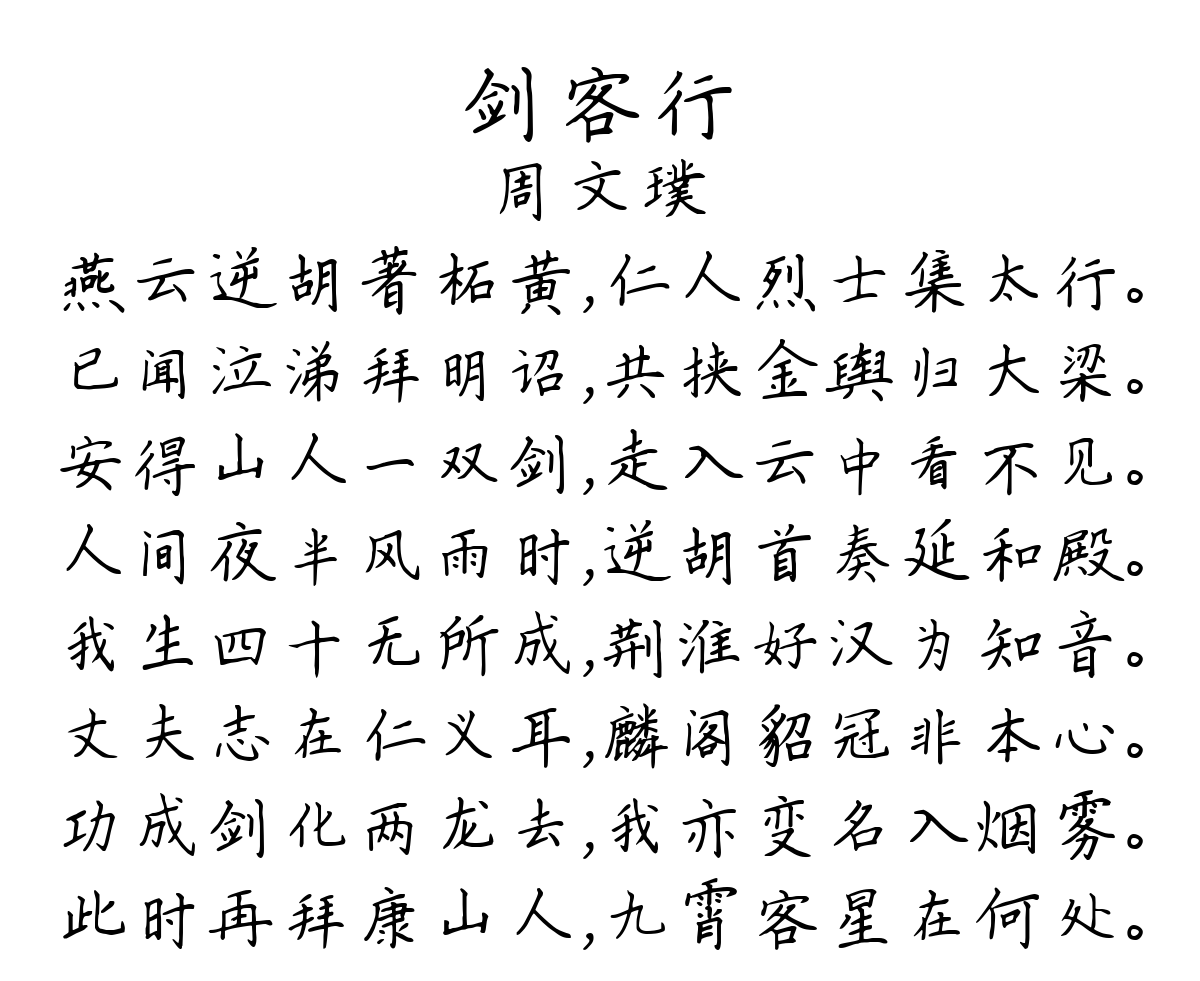 剑客行
周文璞
燕云逆胡著柘黄,仁人烈士集太行。
已闻泣涕拜明诏,共挟金舆归大梁。
安得山人一双剑,走入云中看不见。
人间夜半风雨时,逆胡首奏延和殿。
我生四十无所成,荆淮好汉为知音。
丈夫志在仁义耳,麟阁貂冠非本心。
功成剑化两龙去,我亦变名入烟雾。
此时再拜康山人,九霄客星在何处。